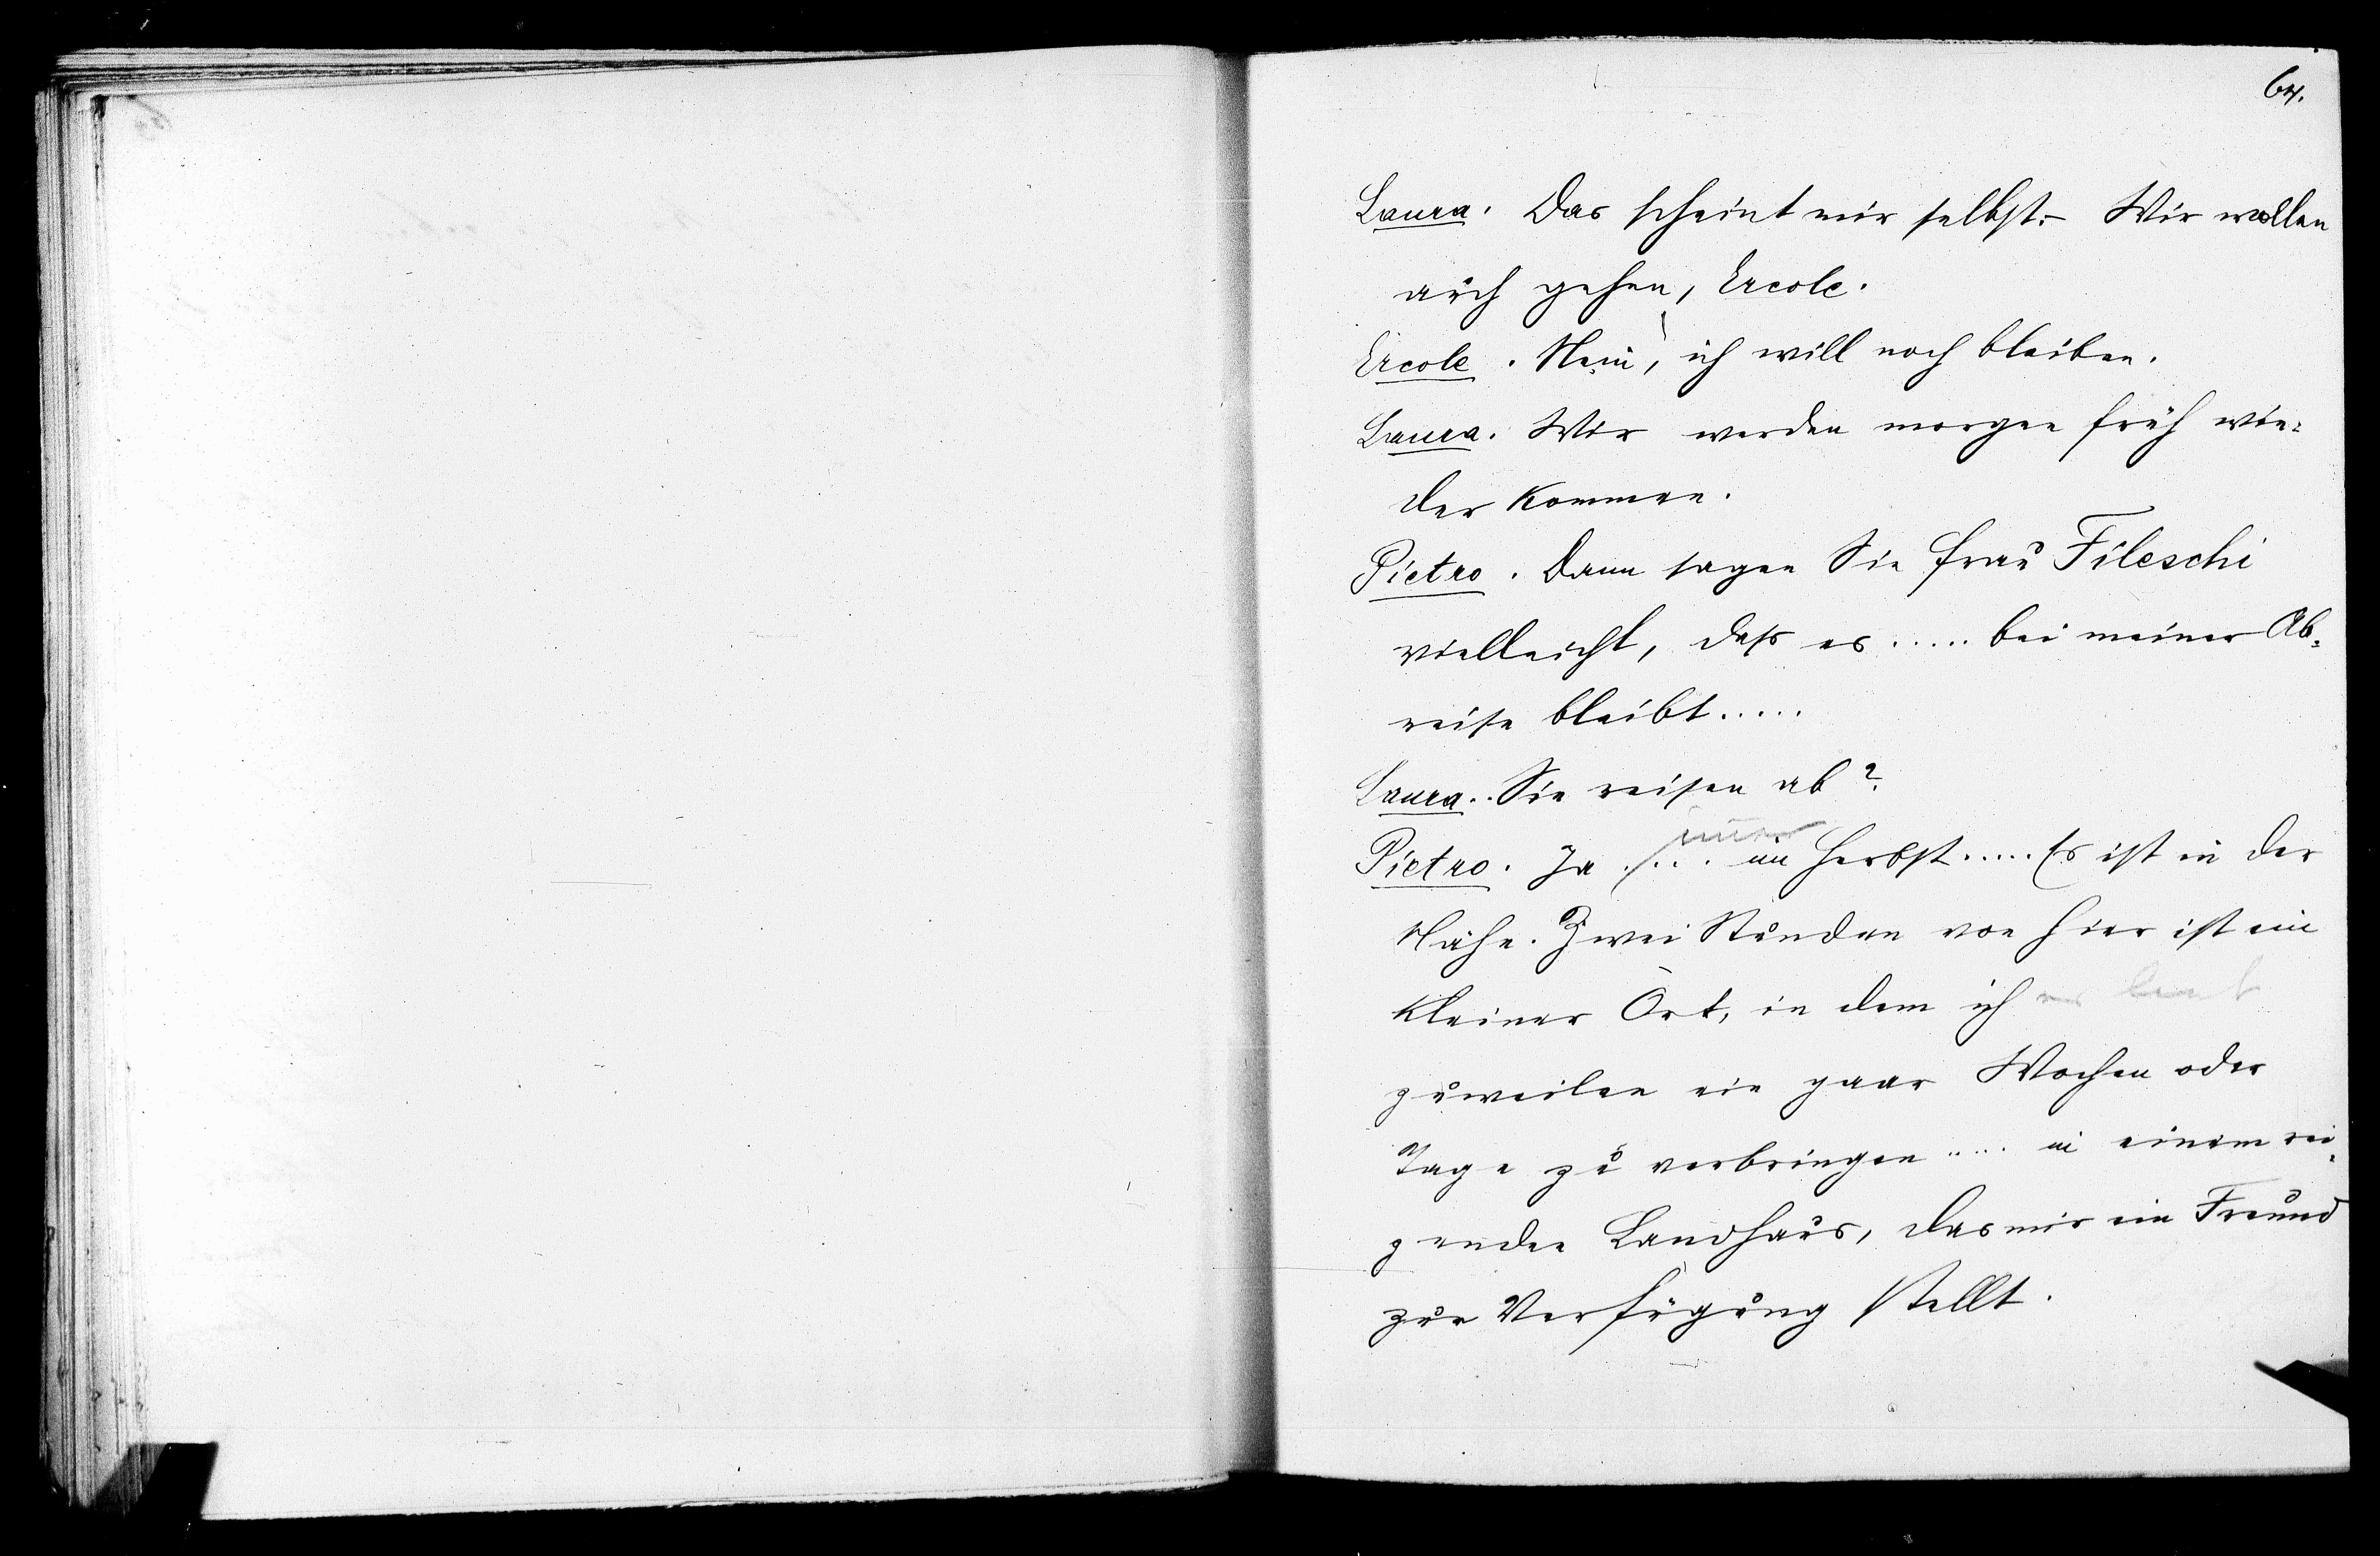 64.
Laura. Das scheint mir selbst. – Wir wollen
auch gehen, Ercole.
Ercole. Nein, ich will noch bleiben.
Laura. Wir werden morgen früh wie-
der kommen.
Pietro. Dann sagen Sie Frau Fileschi
vielleicht, daß es ..... bei meiner Ab-
reise bleibt .....
Laura. Sie reisen ab?
immer
Pietro. Ja .... im Herbst ..... Es ist in der
Nähe. Zwei Stunden von hier ist ein
kleiner Ort, in dem ich
zuweilen ein paar Wochen oder
Tage zu verbringen ..... in einem rei-
zenden Landhaus, das mir ein Freund
zur Verfügung stellt.